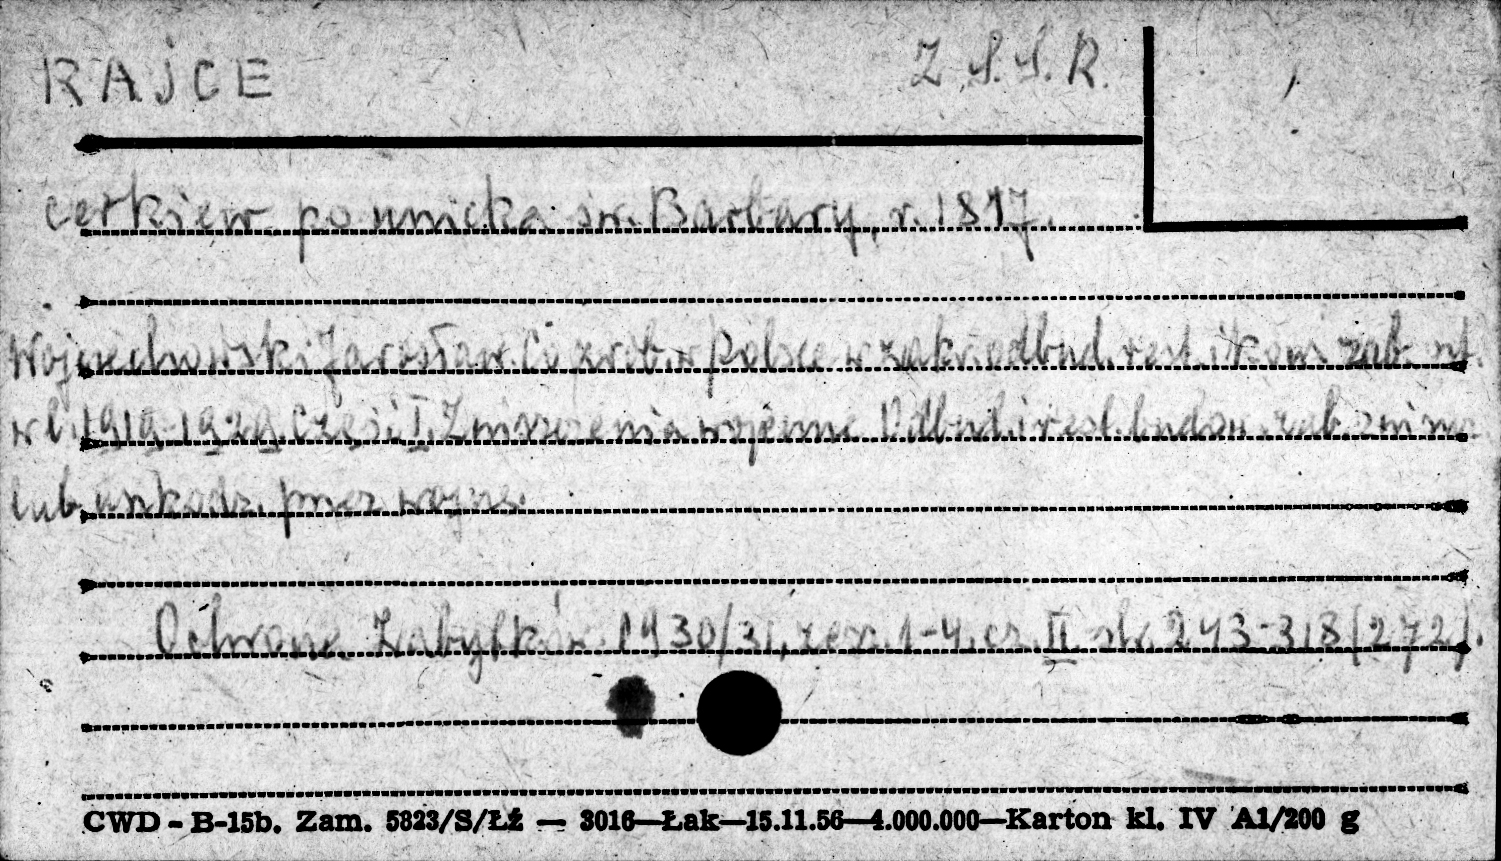 RAJCE Z.S.S.R.
cerkiew pounicka św. Barbary, r. 1817.
Wojciechowski Jarosław. Co zrob. w Polsce w zakr. odbud. rest. i kons. zab. szt.
w l. 1919-1929. Część I. Zniszczenia wojenne. Odbud. i rest. budow. zab. zniszcz.
lub uszkodz. przez wojnę.
Ochrona Zabytków 1930/31, zesz. 1-4. cz. II str. 243-318 (272).
CWD - B-15b. Zam. 5823/S/Łź — 3016—Łak—15.11.56—4.000.000—Karton kl. IV A1/200 g